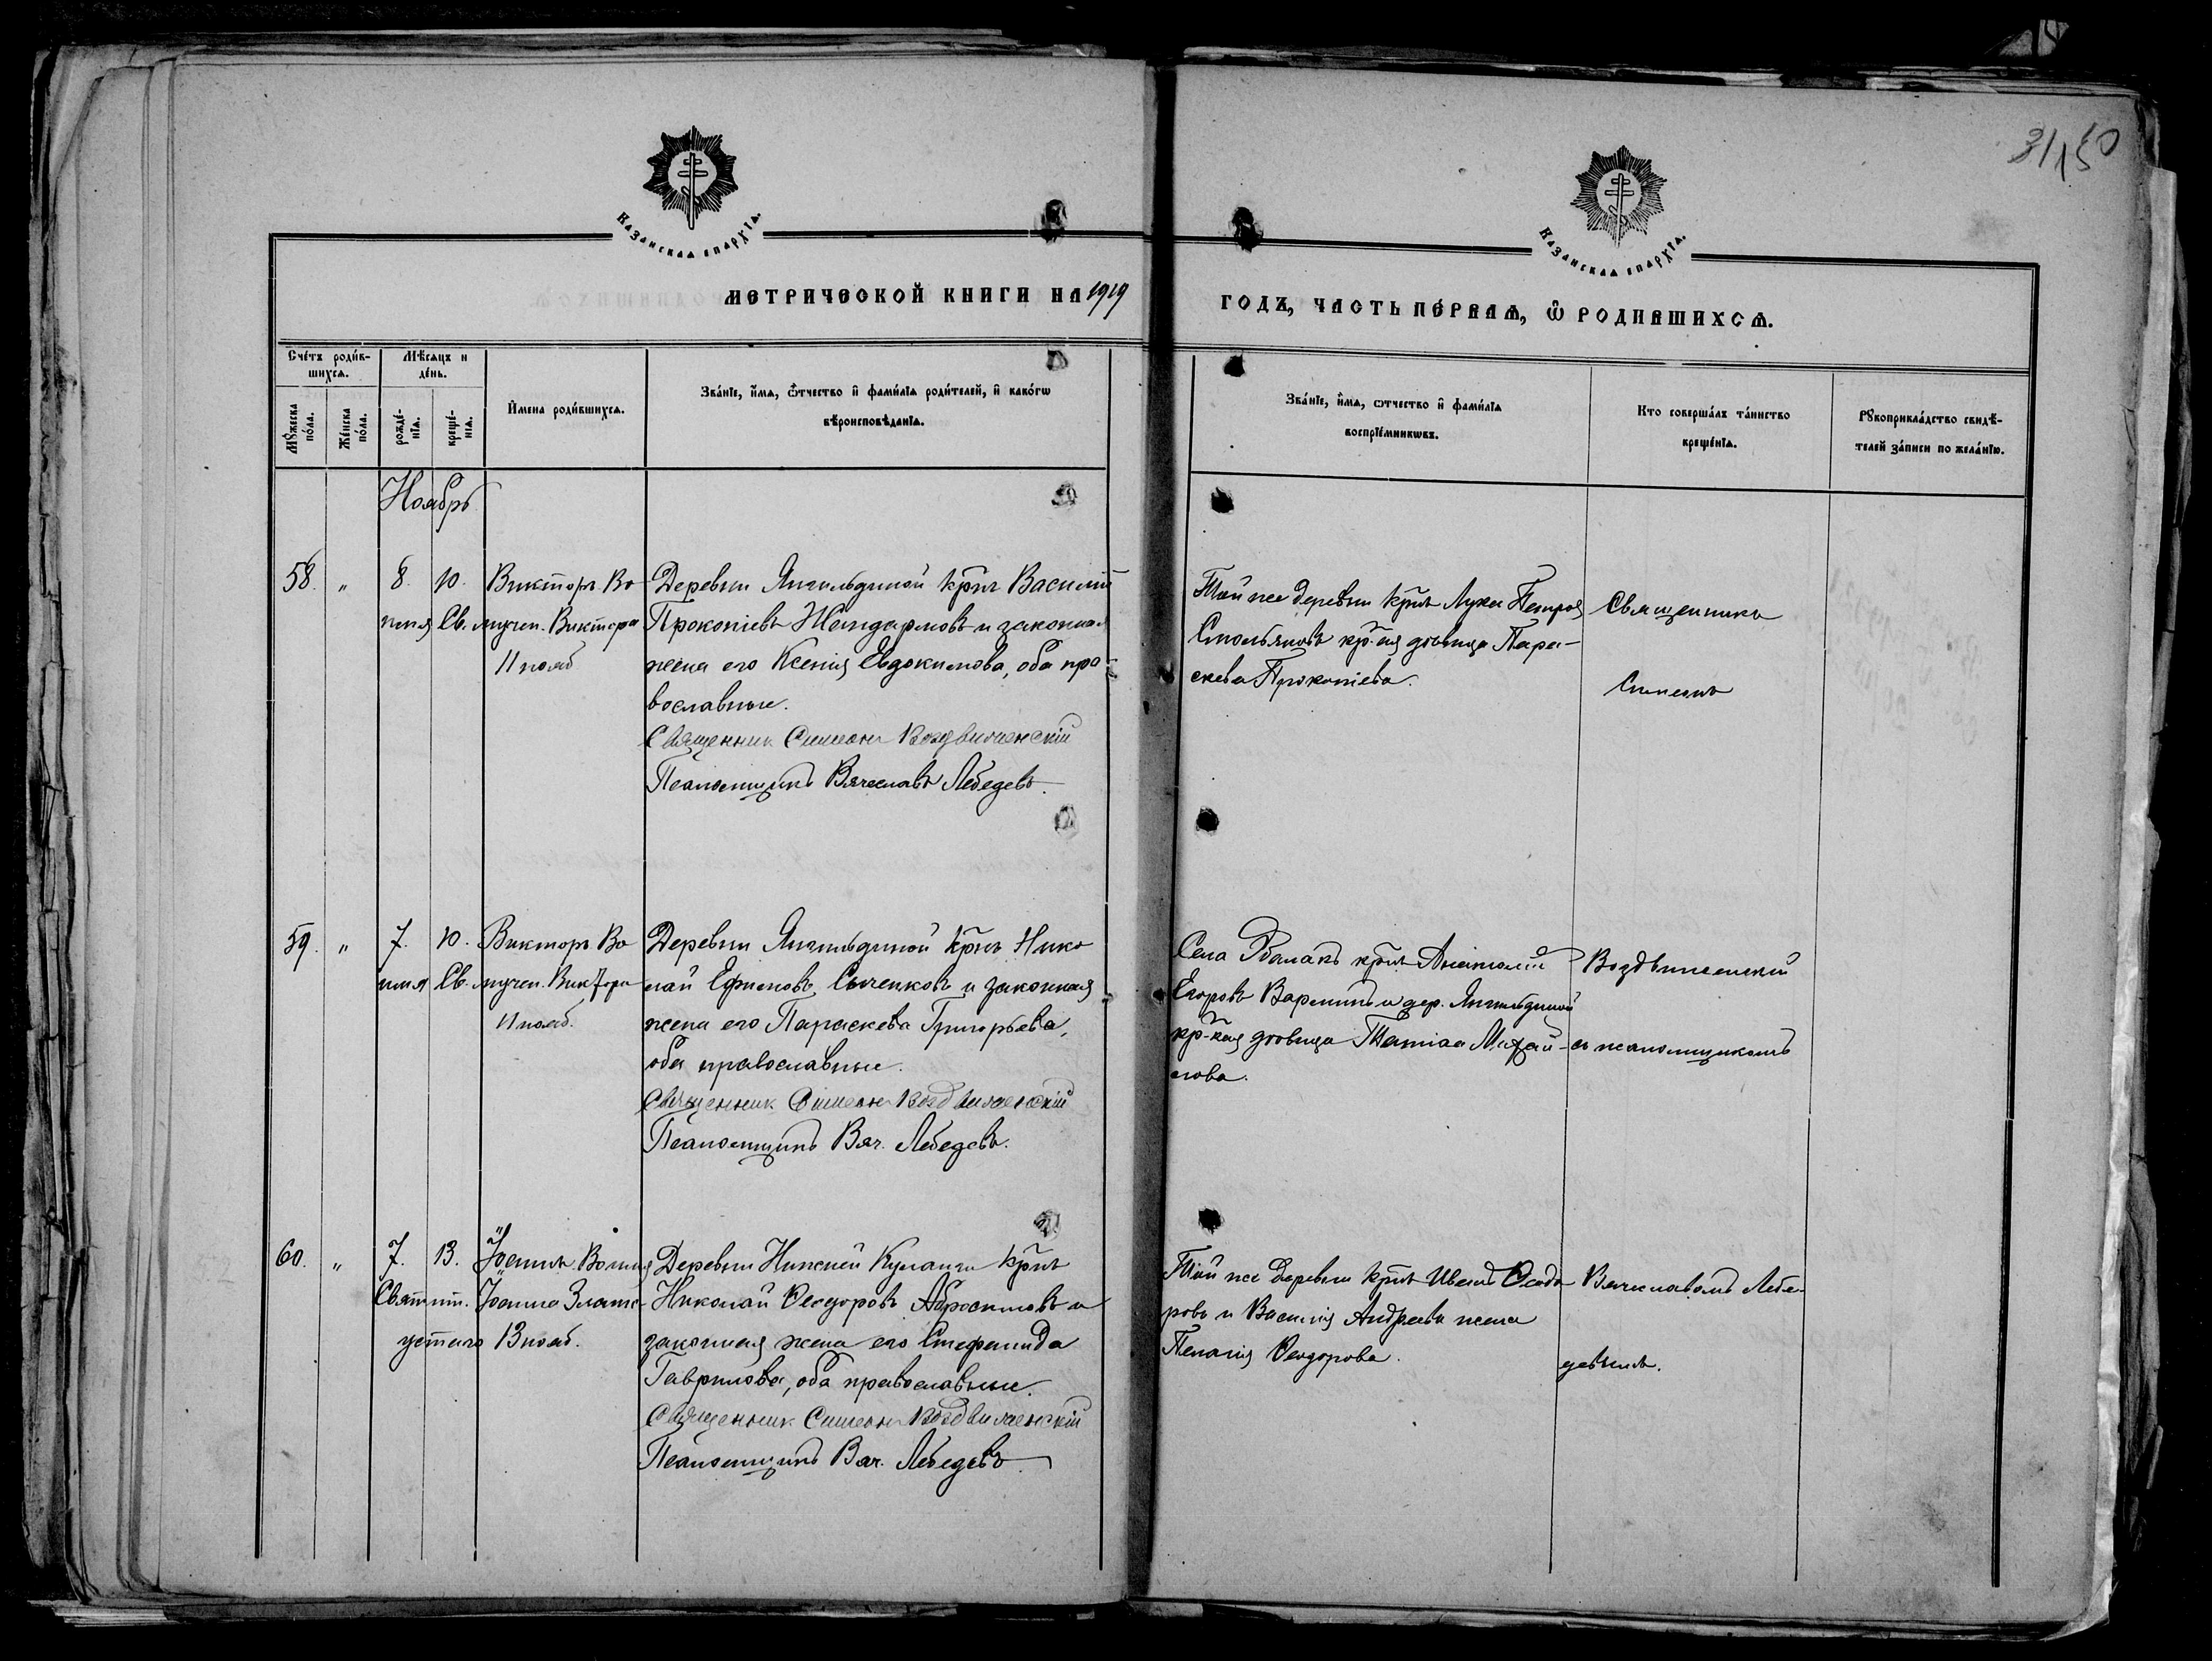 31
150
Казанская епархїа.
Казанская епархїа.
МЕТРИЧЕСКОЙ КНИГИ НА 1919
ГОДЪ, ЧАСТЬ ПЕРВАѦ, Ѡ РОДИВШИХСѦ.
Сче́тъ роди́в-
шихсѧ.
Мѣ́сѧцъ и
де́нь.
Мꙋ́жеска
по́ла.
Же́нска
по́ла.
рожде́-
нїѧ.
креще́-
нїѧ.
И҆мена роди́вшихсѧ.
Зва́нїе, и҆́мѧ, ѻ҆́тчество и҆ фами́лїѧ роди́телей, и҆ како́гѡ
вѣроисповѣ́данїѧ.
Зва́нїе, и҆́мѧ, ѻтчество и҆ фами́лїѧ
воспрїе́мникѡвъ.
Кто соверша́лъ та́инство
креще́нїѧ.
Рꙋкоприкла́дство свидѣ́-
телей за́писи по жела́нїю.
Ноябрь
58. " 8. 10. Викторъ. Во
имя Св. мучен. Виктора
11 нояб
Деревни Янгильдиной кр-нъ Василій
Прокопіевъ Жандармовъ и законная
жена его Ксенія Евдокимова, оба пра-
вославные.
Священникъ Симеонъ Воздвиженскій
Псаломщикъ Вячеславъ Лебедевъ.
Той же деревни кр-нъ Лука Петровъ
Смольяковъ кр-ая дѣвица Пара-
скева Прокопіева.
Священникъ
Симеонъ
59. " 7. 10. Викторъ. Во
имя Св. мучен. Виктора
11 нояб.
Деревни Янгильдиной кр-нъ Нико
лай Ефимовъ Сыченковъ и законная
жена его Параскева Григорьева,
оба православные.
Священникъ Симеонъ Воздвиженскій
Псаломщикъ Вяч. Лебедевъ.
Села кр-нъ Анатолій
Егоровъ и дер. Янгильдиной
кр-кая дѣвица Татіана Михай-
лова.
Воздвиженскій
съ псаломщикомъ
60. " 7. 13. Іоаннъ. Во имя
Святит. Іоанна Злато-
устаго 13 нояб.
Деревни Нижней Куланги кр-нъ
Николай Ѳеодоровъ Абросимовъ и
законная жена его Стефанида
Гаврилова, оба православные.
Священникъ Симеонъ Воздвиженскій
Псаломщикъ Вяч. Лебедевъ
Той же деревни кр-нъ Иванъ Ѳеодо-
ровъ и Василія Андреева жена
Пелагія Ѳеодорова.
Вячеславомъ Лебе-
девымъ.